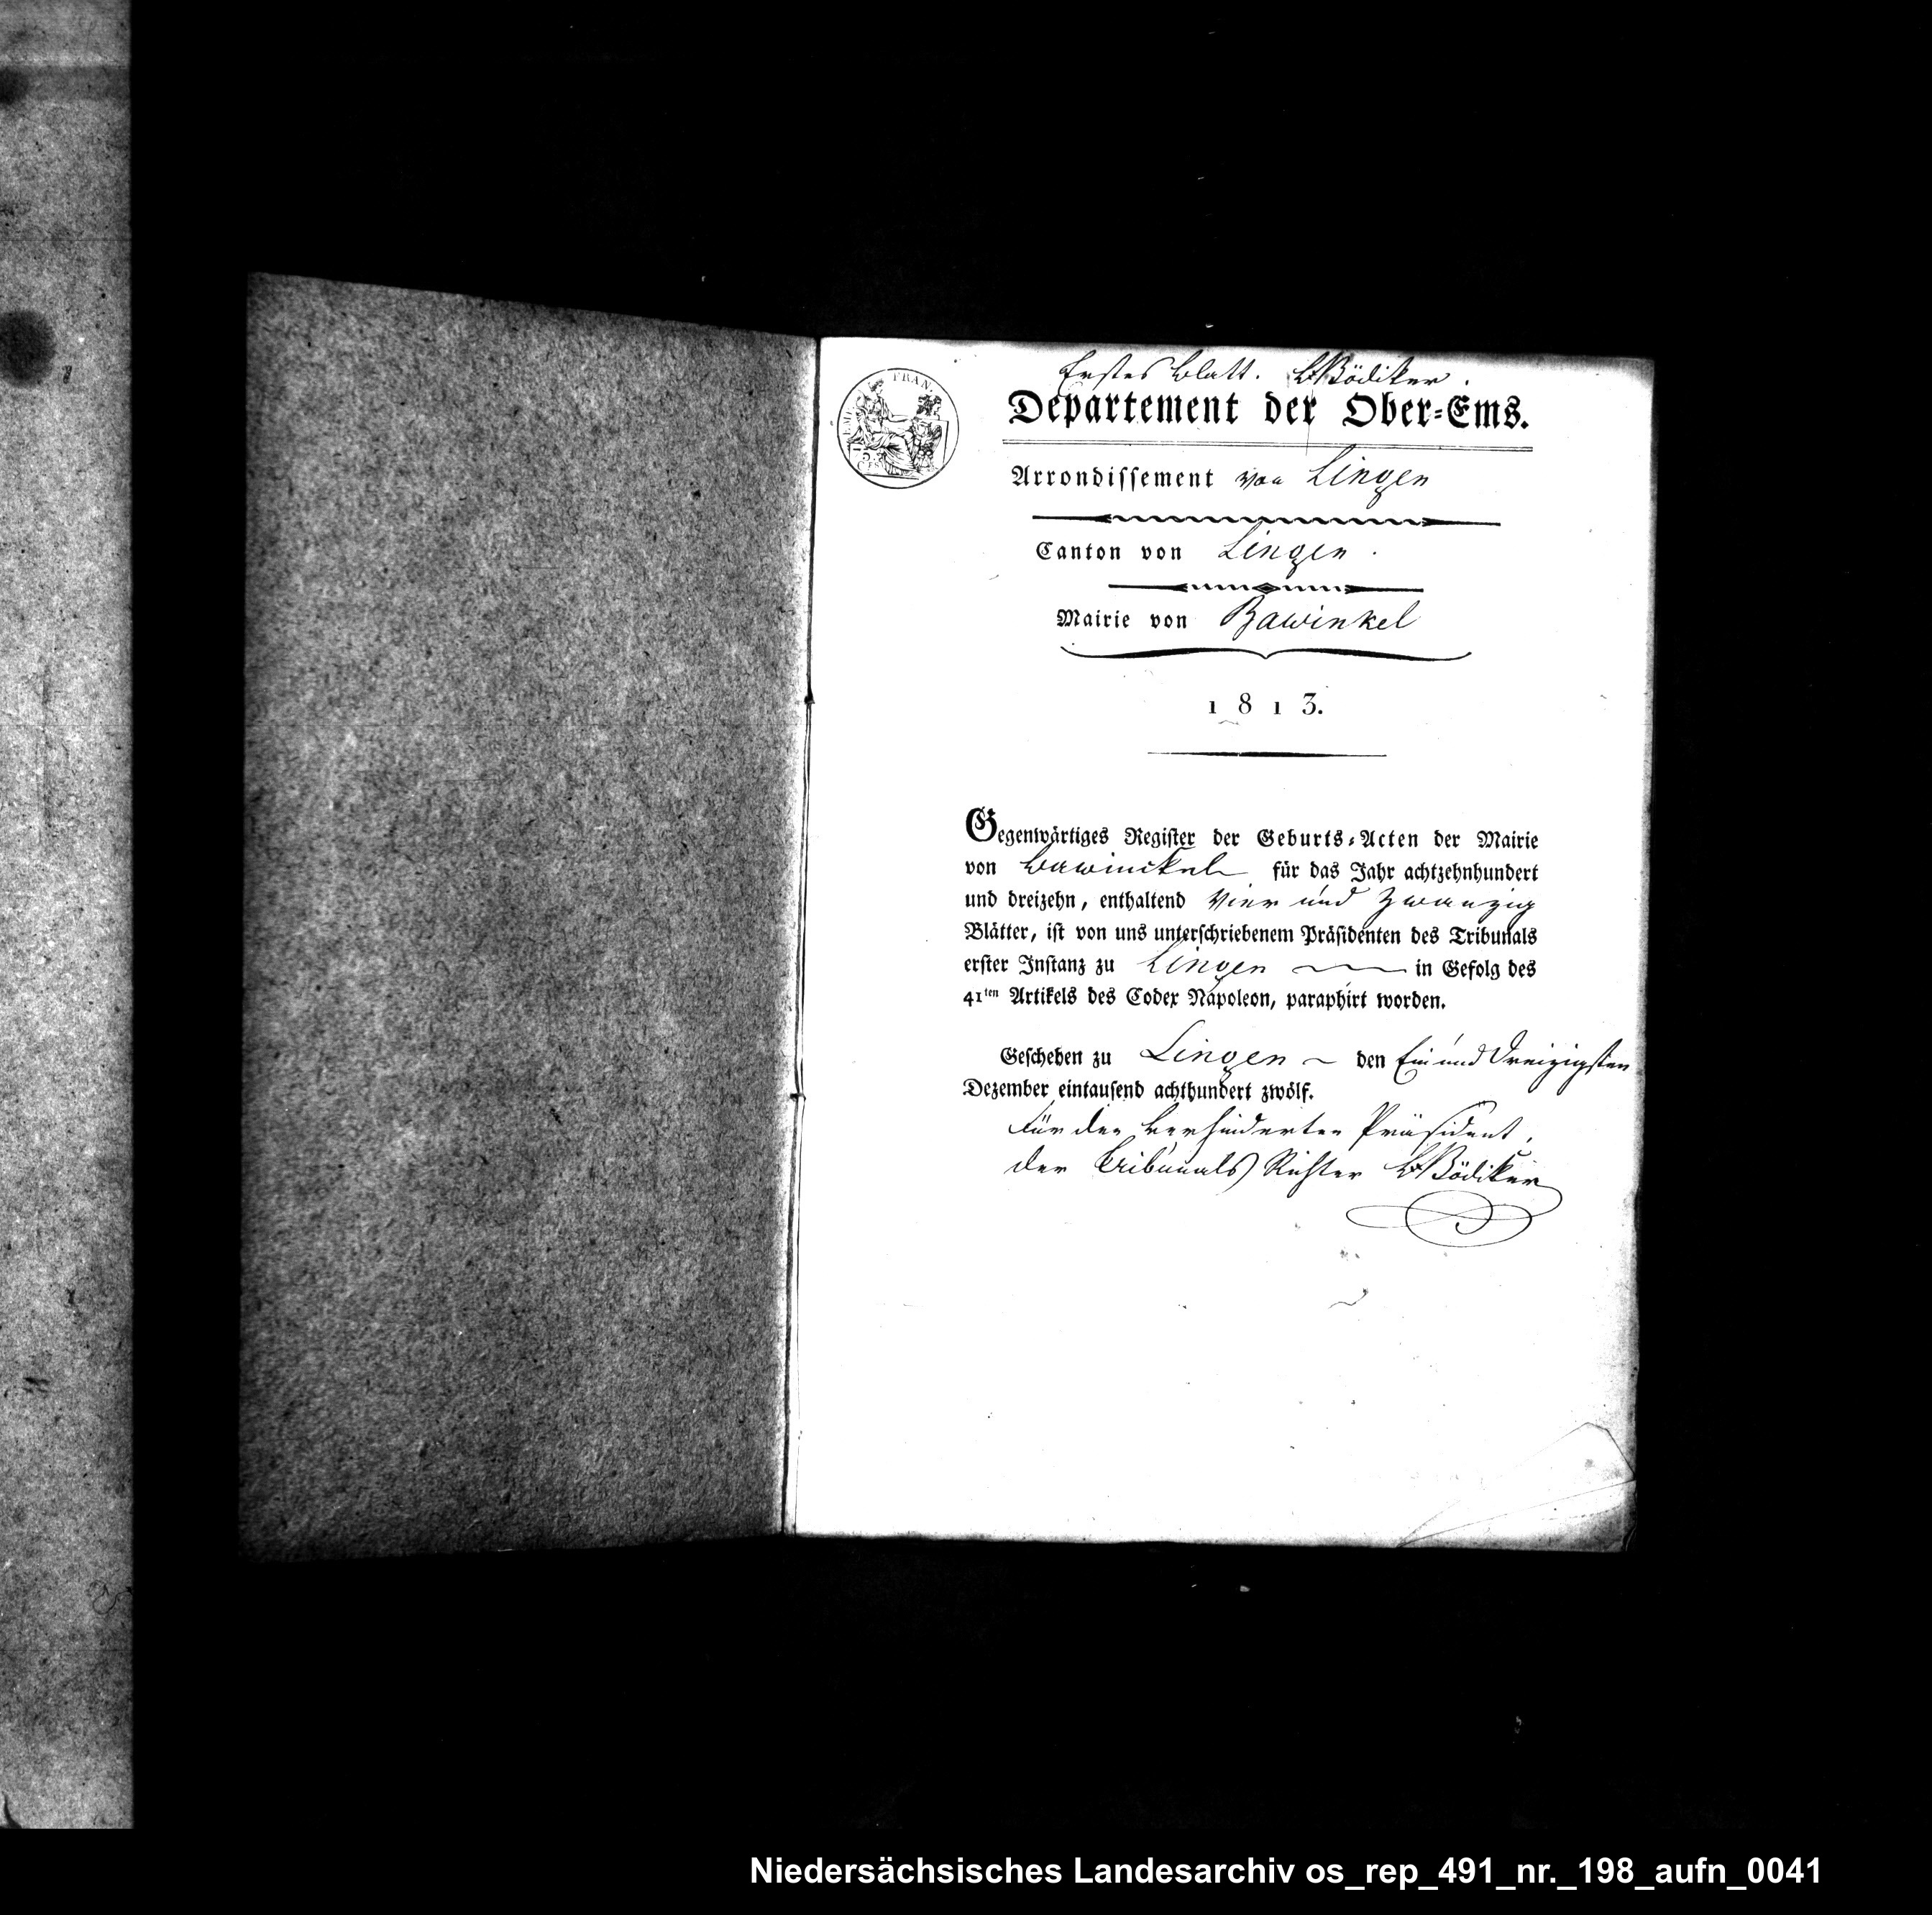 Erstes Blatt. Bödiker.
Departement der Ober=Ems.
Arrondissement von Lingen
Canton von Lingen.
Mairie von Bawinkel
1813.
Gegenwärtiges Register der Geburts=Acten der Mairie
von Bawinckel für das Jahr achtzehnhundert
und dreizehn, enthaltend Vier und Zwanzig
Blätter, ist von uns unterschriebenem Präsidenten des Tribunals
erster Instanz zu Lingen in Gefolg des
41ten Artikels des Codex Napoleon, paraphirt worden.
Geschehen zu Lingen den Ein und Dreizigsten
Dezember eintausend achthundert zwölf.
Für den verhinderten Präsident,
der Tribunals Richter Bödiker
Niedersächsisches Landesarchiv os_rep_491_nr._198_aufn_0041